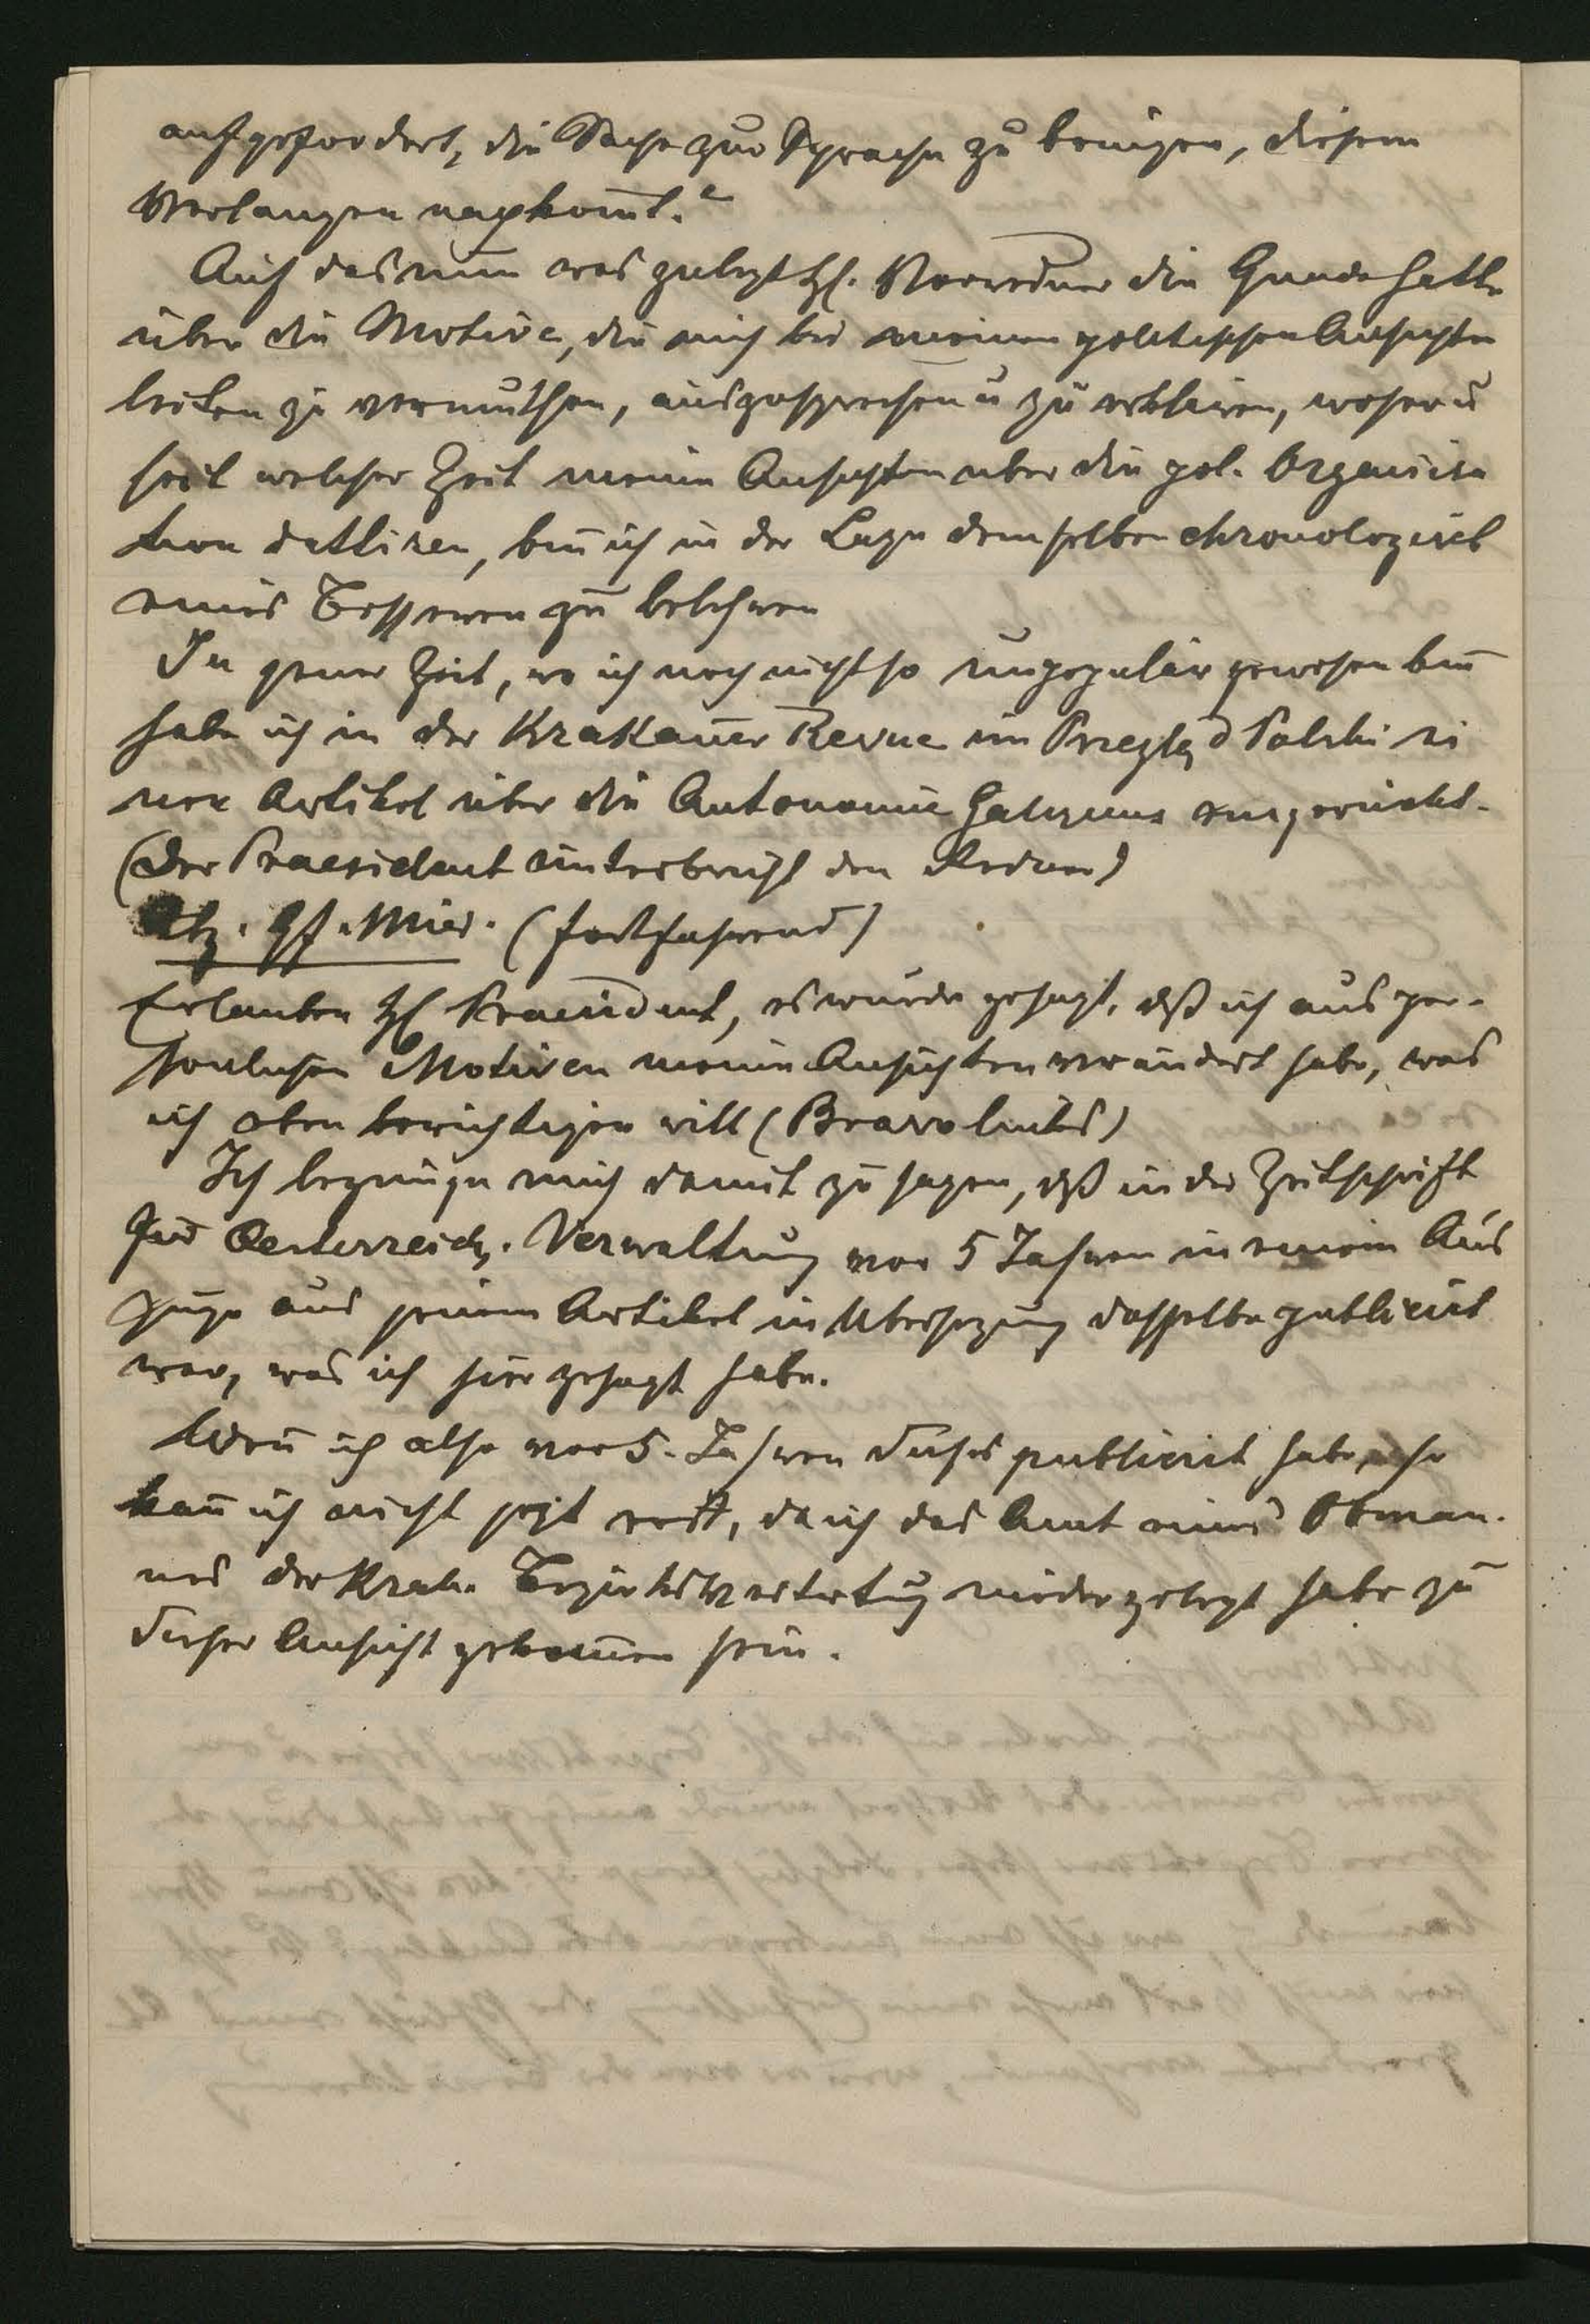 aufgefordert, die Sache zur Sprache zu bringen, diesem
Verlangen nachkom̅t."
Auf das nun was zuletzt H. Vorredner die Gnade hatte
über die Motive, die mich bei meinen politischen Ansichten
leiten zu vermuthen, auszusprechen u zu erklären, woher u
seit welcher Zeit meine Ansichten über die pol. Organisa
tion dattiren, bin ich in der Lage demselben chronologisch
eines Besseren zu belehren
In jener Zeit, wo ich noch nicht so unpopulär gewesen bin
habe ich in der Krakauer Revue im Przegląd Polski ei
nen Artikel über die Autonomie Galiziens eingerückt.
(Der Praesident unterbricht den Redner)
Abg. Gf. Mier. (fortfahrend)
Erlauben H Praesident, es wurde gesagt, dß ich aus per-
sönlichen Motiven meine Ansichten verändert habe, was
ich eben berichtigen will (Bravo links)
Ich begnüge mich damit zu sagen, dß in der Zeitschrift
für Oesterreich. Verwaltung vor 5 Jahren in einem Aus
zuge aus jenem Artikel in Übersezung dasselbe publicirt
war, was ich hier gesagt habe.
Wen̅ ich also vor 5. Jahren dieses publicirt habe, so
kan̅ ich nicht jezt erst, da ich das Amt eines Obman-
nes der Krak. Bezirksvertretung niedergelegt habe zu
dieser Ansicht gekom̅en sein.